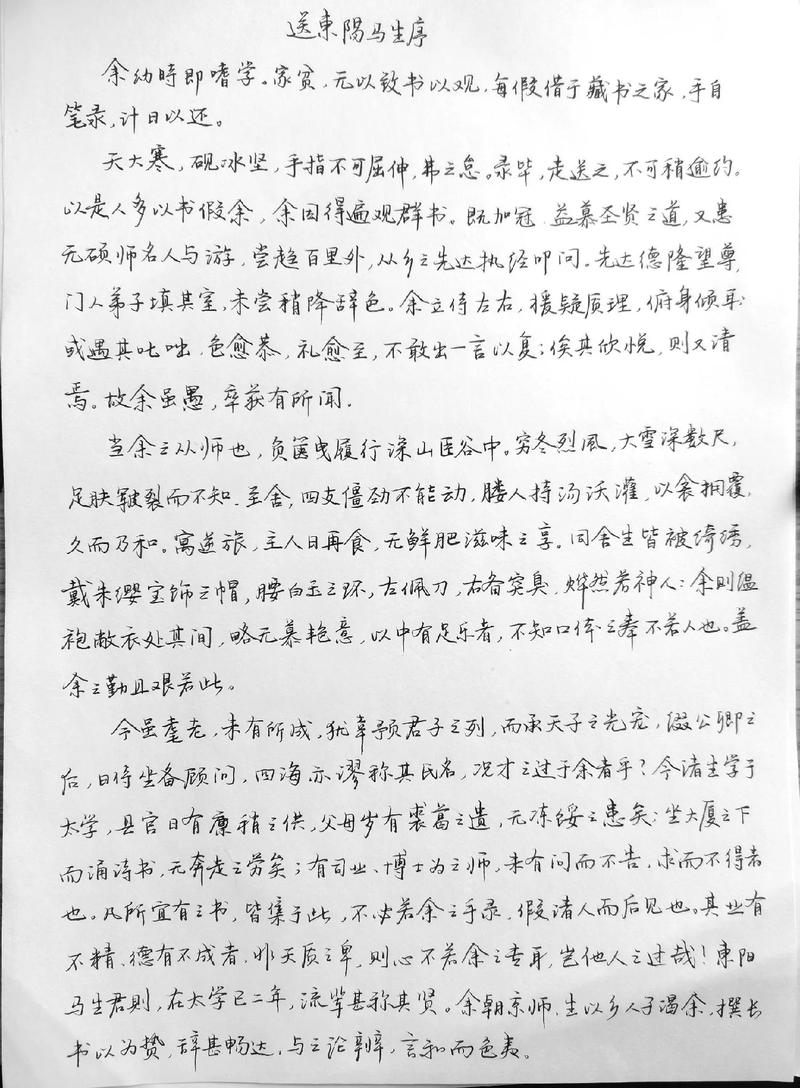 送東陽马生序
余幼時即嗜学。家贫，无以致书以观，每假借于藏书之家，手自
笔录，计日以还。
天大寒，砚冰坚，手指不可屈伸，弗之怠。录毕，走送之，不可稍逾约。
以是人多以书假余，余因得遍观群书。既加冠、益慕圣贤之道，又患
无硕师名人与游，尝趋百里外，从乡之先达执经叩问。先达德隆望尊，
门人弟子填其室，未尝稍降辞色。余立侍左右，援疑质理，俯身倾耳
或遇其叱咄，色愈恭，礼愈至，不敢出一言以复；俟其欣悦，则又请
焉。故余虽愚，卒获有所闻.
当余之从师也，负箧曳履行深山巨谷中。穷冬烈風，大雪深数尺，
足肤皲裂而不知.至舍，四支僵劲不能动，媵人持汤沃灌，以衾拥覆，
久而乃和。寓逆旅，主人日再食，无鲜肥滋味之享。同舍生皆被绮绣，
戴朱缨宝饰之帽，腰白玉之环，左佩刀，右备容臭，烨然若神人；余则缊
袍敝衣处其间，略无慕艳意，以中有足乐者，不知口体之奉不若人也。盖
余之勤且艰若此。
今虽耄老，未有所成，犹幸预君子之列，而承天子之光宠，缀公卿之
后，日侍坐备顾问，四海亦谬称其氏名，况才之过于余者乎？今诸生学于
太学，县官日有廪稍之供，父母岁有裘葛之遗，无冻绥之患矣；坐大厦之下
而诵诗书，无奔走之劳矣；有司业、博士为之师，未有问而不告，求而不得者
也。凡所宜有之书，皆集于此，不必若余之手录，假诸人而后见也。其业有
不精、德有不成者，非天质之卑，则心不若余之专耳，岂他人之过哉！東阳
马生君则，在太学已二年，流辈甚称其贤。余朝京师，生以乡人子谒余，撰长
书以为贽，辞甚畅达，与之论辨，言和而色夷。